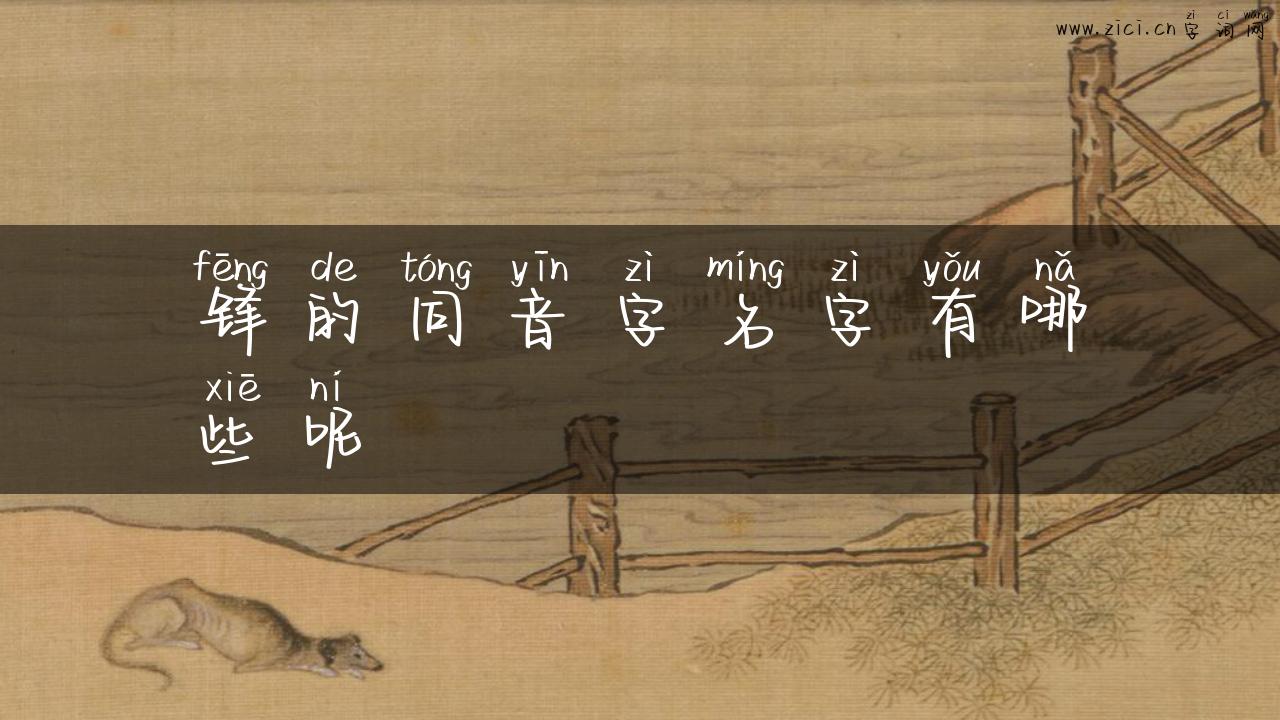 zì cí wǎng
www.zici.cn 字词网
fēng de tóng yīn zì míng zì yǒu nǎ
锋的同音字名字有哪
xiē ní
些呢